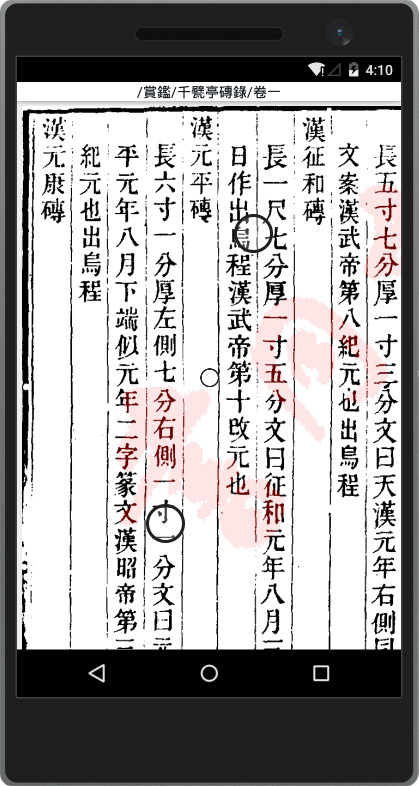 4:10
/賞鑑/千甓亭磚錄/卷一
長五寸七分厚一寸三分文曰天漢元年右側同
文案漢武帝第八紀元也出烏程
漢征和磚
長一尺七分厚一寸五分文曰征和元年八月
日作出烏程漢武帝第十改元也
漢元平磚
長六寸一分厚左側七分右側一寸一分文曰
平元年八月下端似元年二字篆文漢昭帝第
紀元也出烏程
漢元康磚